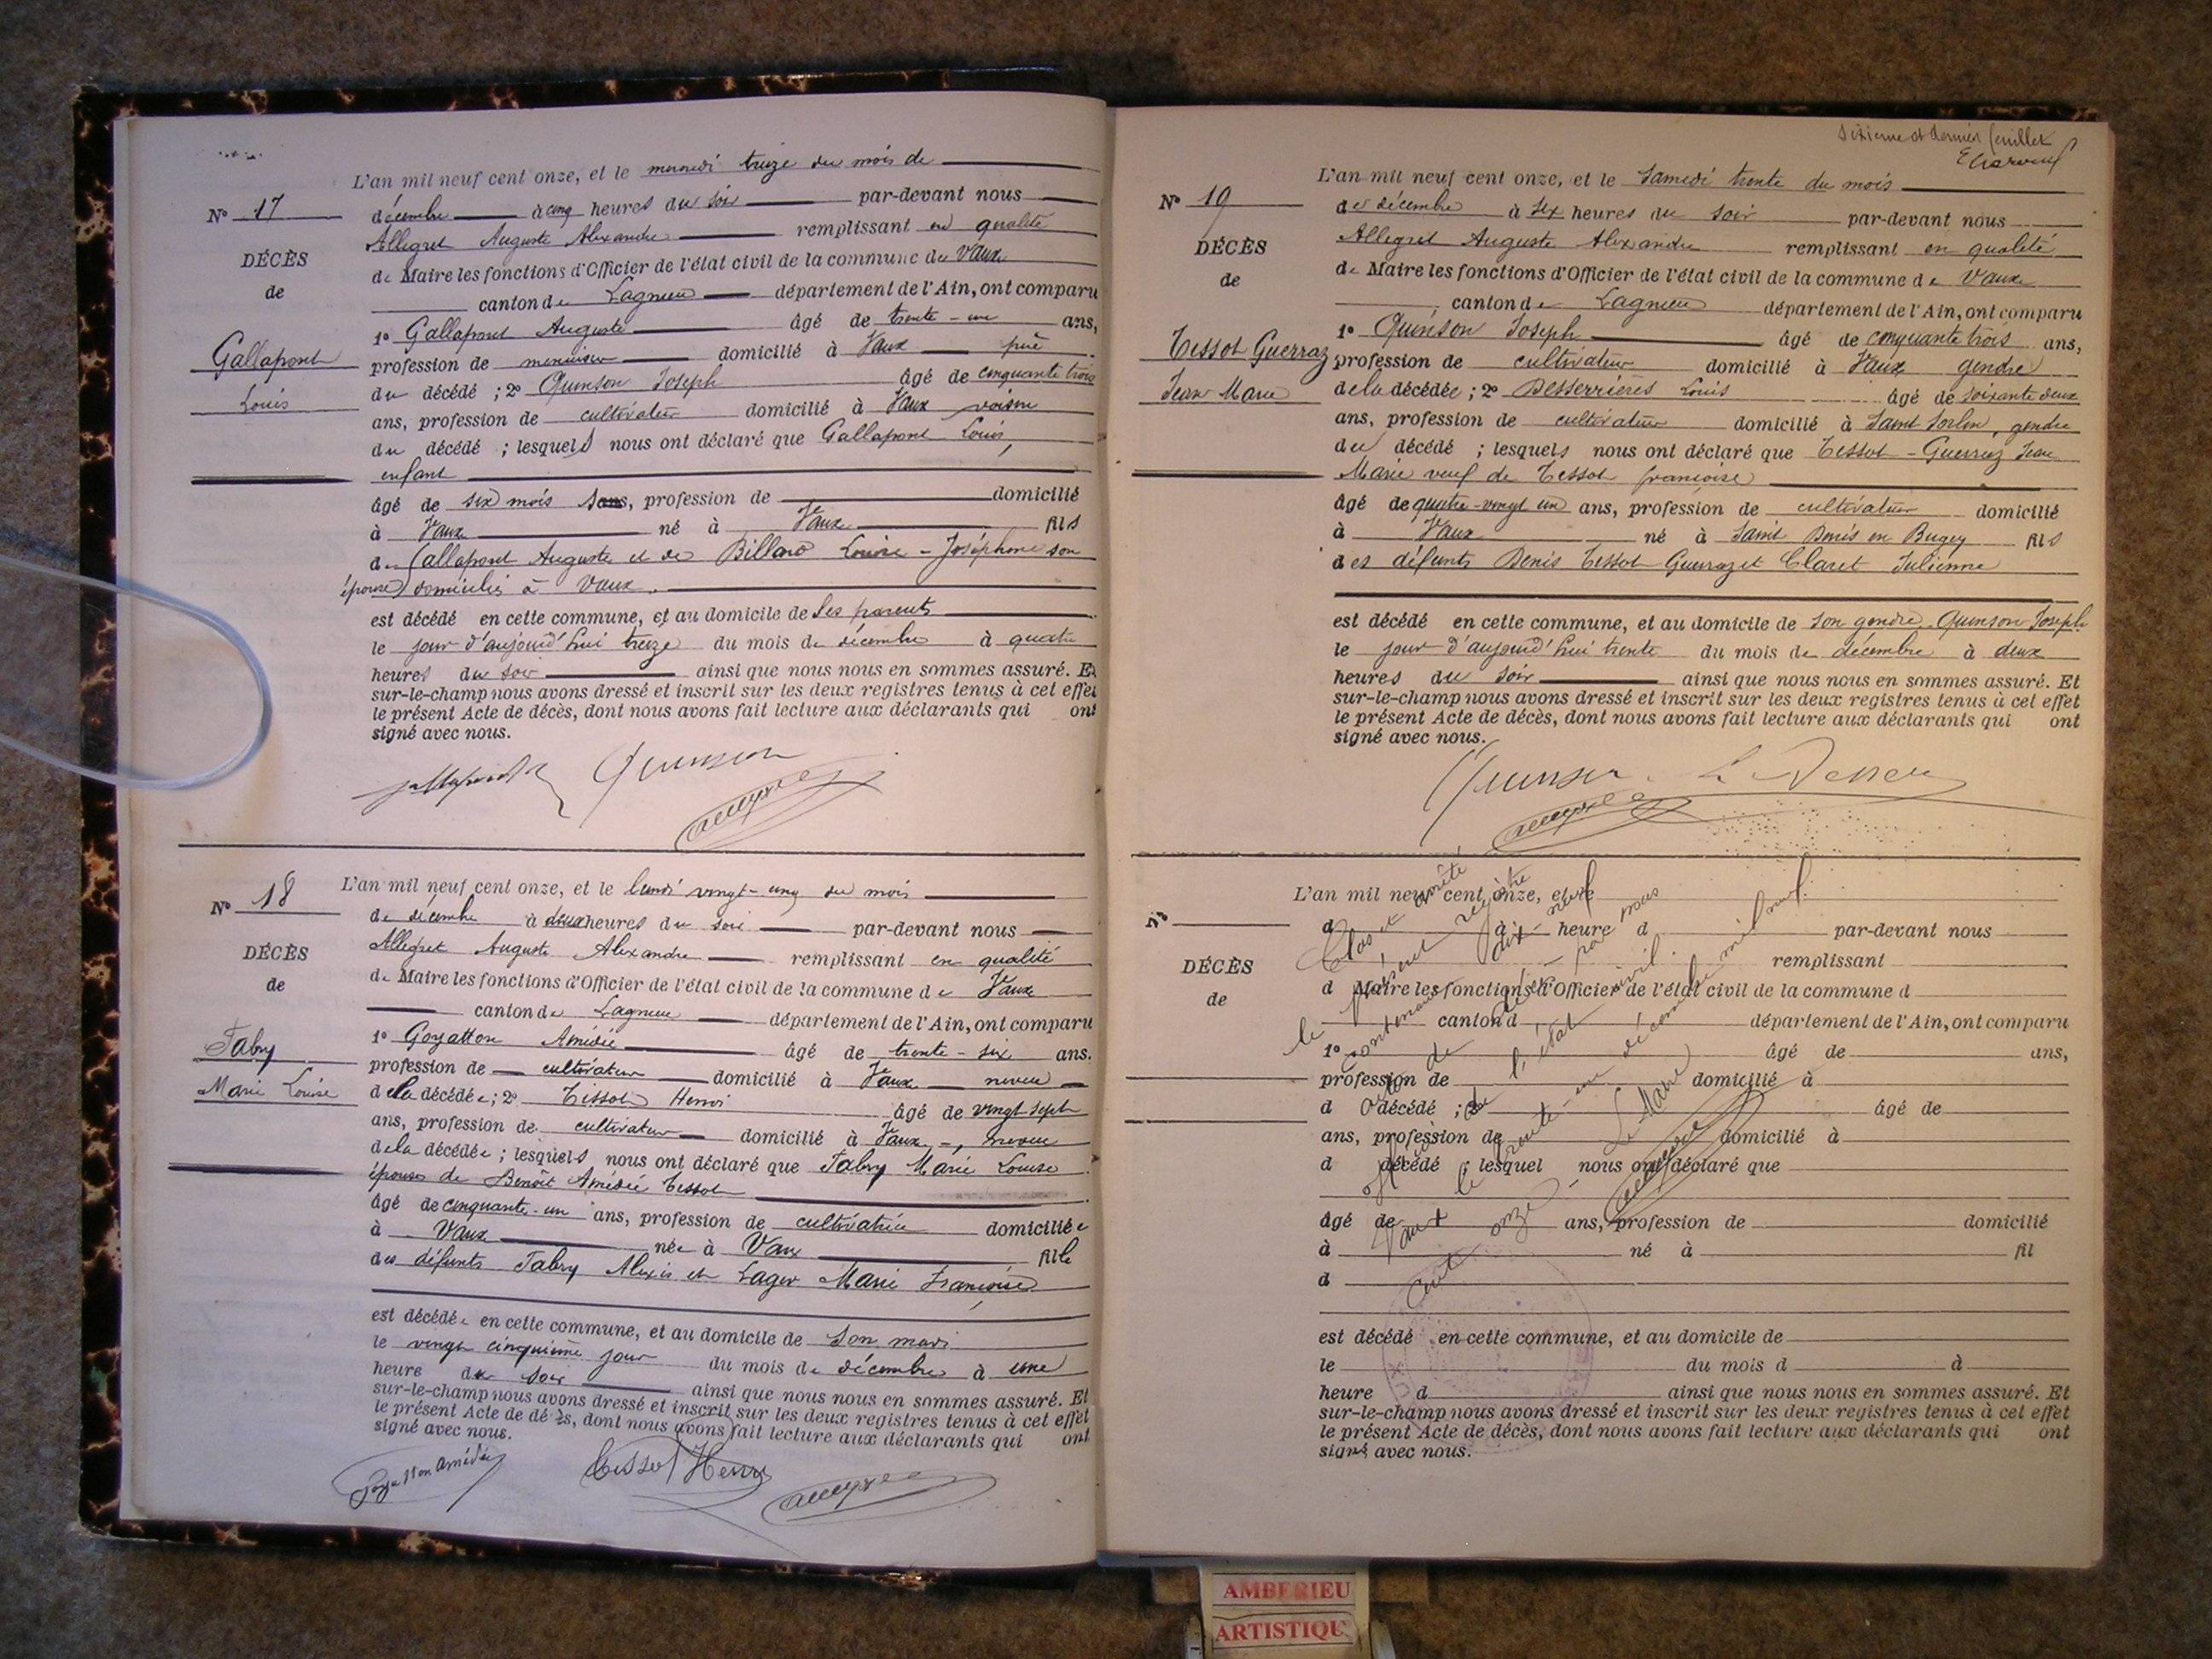 L'an mil neuf cent onze, et le mercredi treize du mois de
Nº 17
décembre à cinq heures du soir par-devant nous
Allegret Auguste Alexandre remplissant en qualité
DÉCÈS
de Maire les fonctions d'Officier de l'état civil de la commune de Vaux
de
canton de Lagnieu département de l'Ain, ont comparu
1º Gallapont Auguste âgé de trente-un ans,
Gallapont
profession de menuisier domicilié à Vaux père
Louis
du décédé ; 2º Quinson Joseph âgé de cinquante trois
ans, profession de cultivateur domicilié à Vaux voisin
du décédé ; lesquels nous ont déclaré que Gallapont Louis,
enfant
âgé de six mois ans, profession de domicilié
à Vaux né à Vaux fils
de Gallapont Auguste et de Billard Louise-Joséphine son
épouse domiciliés à Vaux.
est décédé en cette commune, et au domicile de ses parents
le jour d'aujourd'hui treize du mois de décembre à quatre
heures du soir ainsi que nous nous en sommes assuré. Et
sur-le-champ nous avons dressé et inscrit sur les deux registres tenus à cet effet
le présent Acte de décès, dont nous avons fait lecture aux déclarants qui ont
signé avec nous.
Gallapont Quinson
Allegret
L'an mil neuf cent onze, et le lundi vingt-cinq du mois
Nº 18
de décembre à deux heures du soir par-devant nous
Allegret Auguste Alexandre remplissant en qualité
DÉCÈS
de Maire les fonctions d'Officier de l'état civil de la commune de Vaux
de
canton de Lagnieu département de l'Ain, ont comparu
1º Goyatton Amédée âgé de trente-six ans.
Fabry
profession de cultivateur domicilié à Vaux neveu
Marie Louise
de la décédée ; 2º Tissot Henri âgé de vingt sept
ans, profession de cultivateur domicilié à Vaux, neveu
de la décédée ; lesquels nous ont déclaré que Fabry Marie Louise
épouse de Benoît Amédée Tissot
âgé de cinquante-un ans, profession de cultivatrice domiciliée
à Vaux née à Vaux fille
des défunts Fabry Alexis et Lager Marie Françoise
est décédée en cette commune, et au domicile de son mari
le vingt cinquième jour du mois de décembre à une
heure du soir ainsi que nous nous en sommes assuré. Et
sur-le-champ nous avons dressé et inscrit sur les deux registres tenus à cet effet
le présent Acte de décès, dont nous avons fait lecture aux déclarants qui ont
signé avec nous.
Goyatton Amédée Tissot Henri Allegret
Sixième et dernier feuillet
L'an mil neuf cent onze, et le samedi trente du mois
Nº 19
de décembre à six heures du soir par-devant nous
Allegret Auguste Alexandre remplissant en qualité
DÉCÈS
de Maire les fonctions d'Officier de l'état civil de la commune de Vaux
de
canton de Lagnieu département de l'Ain, ont comparu
1º Quinson Joseph âgé de cinquante trois ans,
Tissot Guerraz
profession de cultivateur domicilié à Vaux gendre
Jean Marie
de la décédée ; 2º Desserrières Louis âgé de soixante deux
ans, profession de cultivateur domicilié à Saint Sorlin, gendre
du décédé ; lesquels nous ont déclaré que Tissot-Guerraz Jean
Marie veuf de Tissot françoise
âgé de quatre-vingt un ans, profession de cultivateur domicilié
à Vaux né à Saint Denis en Bugey fils
des défunts Denis Tissot Guerraz et Claret Julienne
est décédé en cette commune, et au domicile de son gendre Quinson Joseph
le jour d'aujourd'hui trente du mois de décembre à deux
heures du soir ainsi que nous nous en sommes assuré. Et
sur-le-champ nous avons dressé et inscrit sur les deux registres tenus à cet effet
le présent Acte de décès, dont nous avons fait lecture aux déclarants qui ont
signé avec nous.
Quinson L Desser
Allegret
L'an mil neuf cent onze, et le
Nº
d à heure d par-devant nous
remplissant
DÉCÈS
d Maire les fonctions d'Officier de l'état civil de la commune d
de
canton d département de l'Ain, ont comparu
1º âgé de ans,
profession de domicilié à
d décédé ; 2º âgé de
ans, profession de domicilié à
d décédé ; lesquel nous ont déclaré que
âgé de ans, profession de domicilié
à né à fil
d
est décédé en cette commune, et au domicile de
le du mois d à
heure d ainsi que nous nous en sommes assuré. Et
sur-le-champ nous avons dressé et inscrit sur les deux registres tenus à cet effet
le présent Acte de décès, dont nous avons fait lecture aux déclarants qui ont
signé avec nous.
Clos et arrêté
le présent registre
contenant dix-neuf
actes de décès par nous
officier de l'état civil.
Vaux le trente-un décembre mil neuf
cent onze
Le Maire
Allegret
AMBERIEU
ARTISTIQU